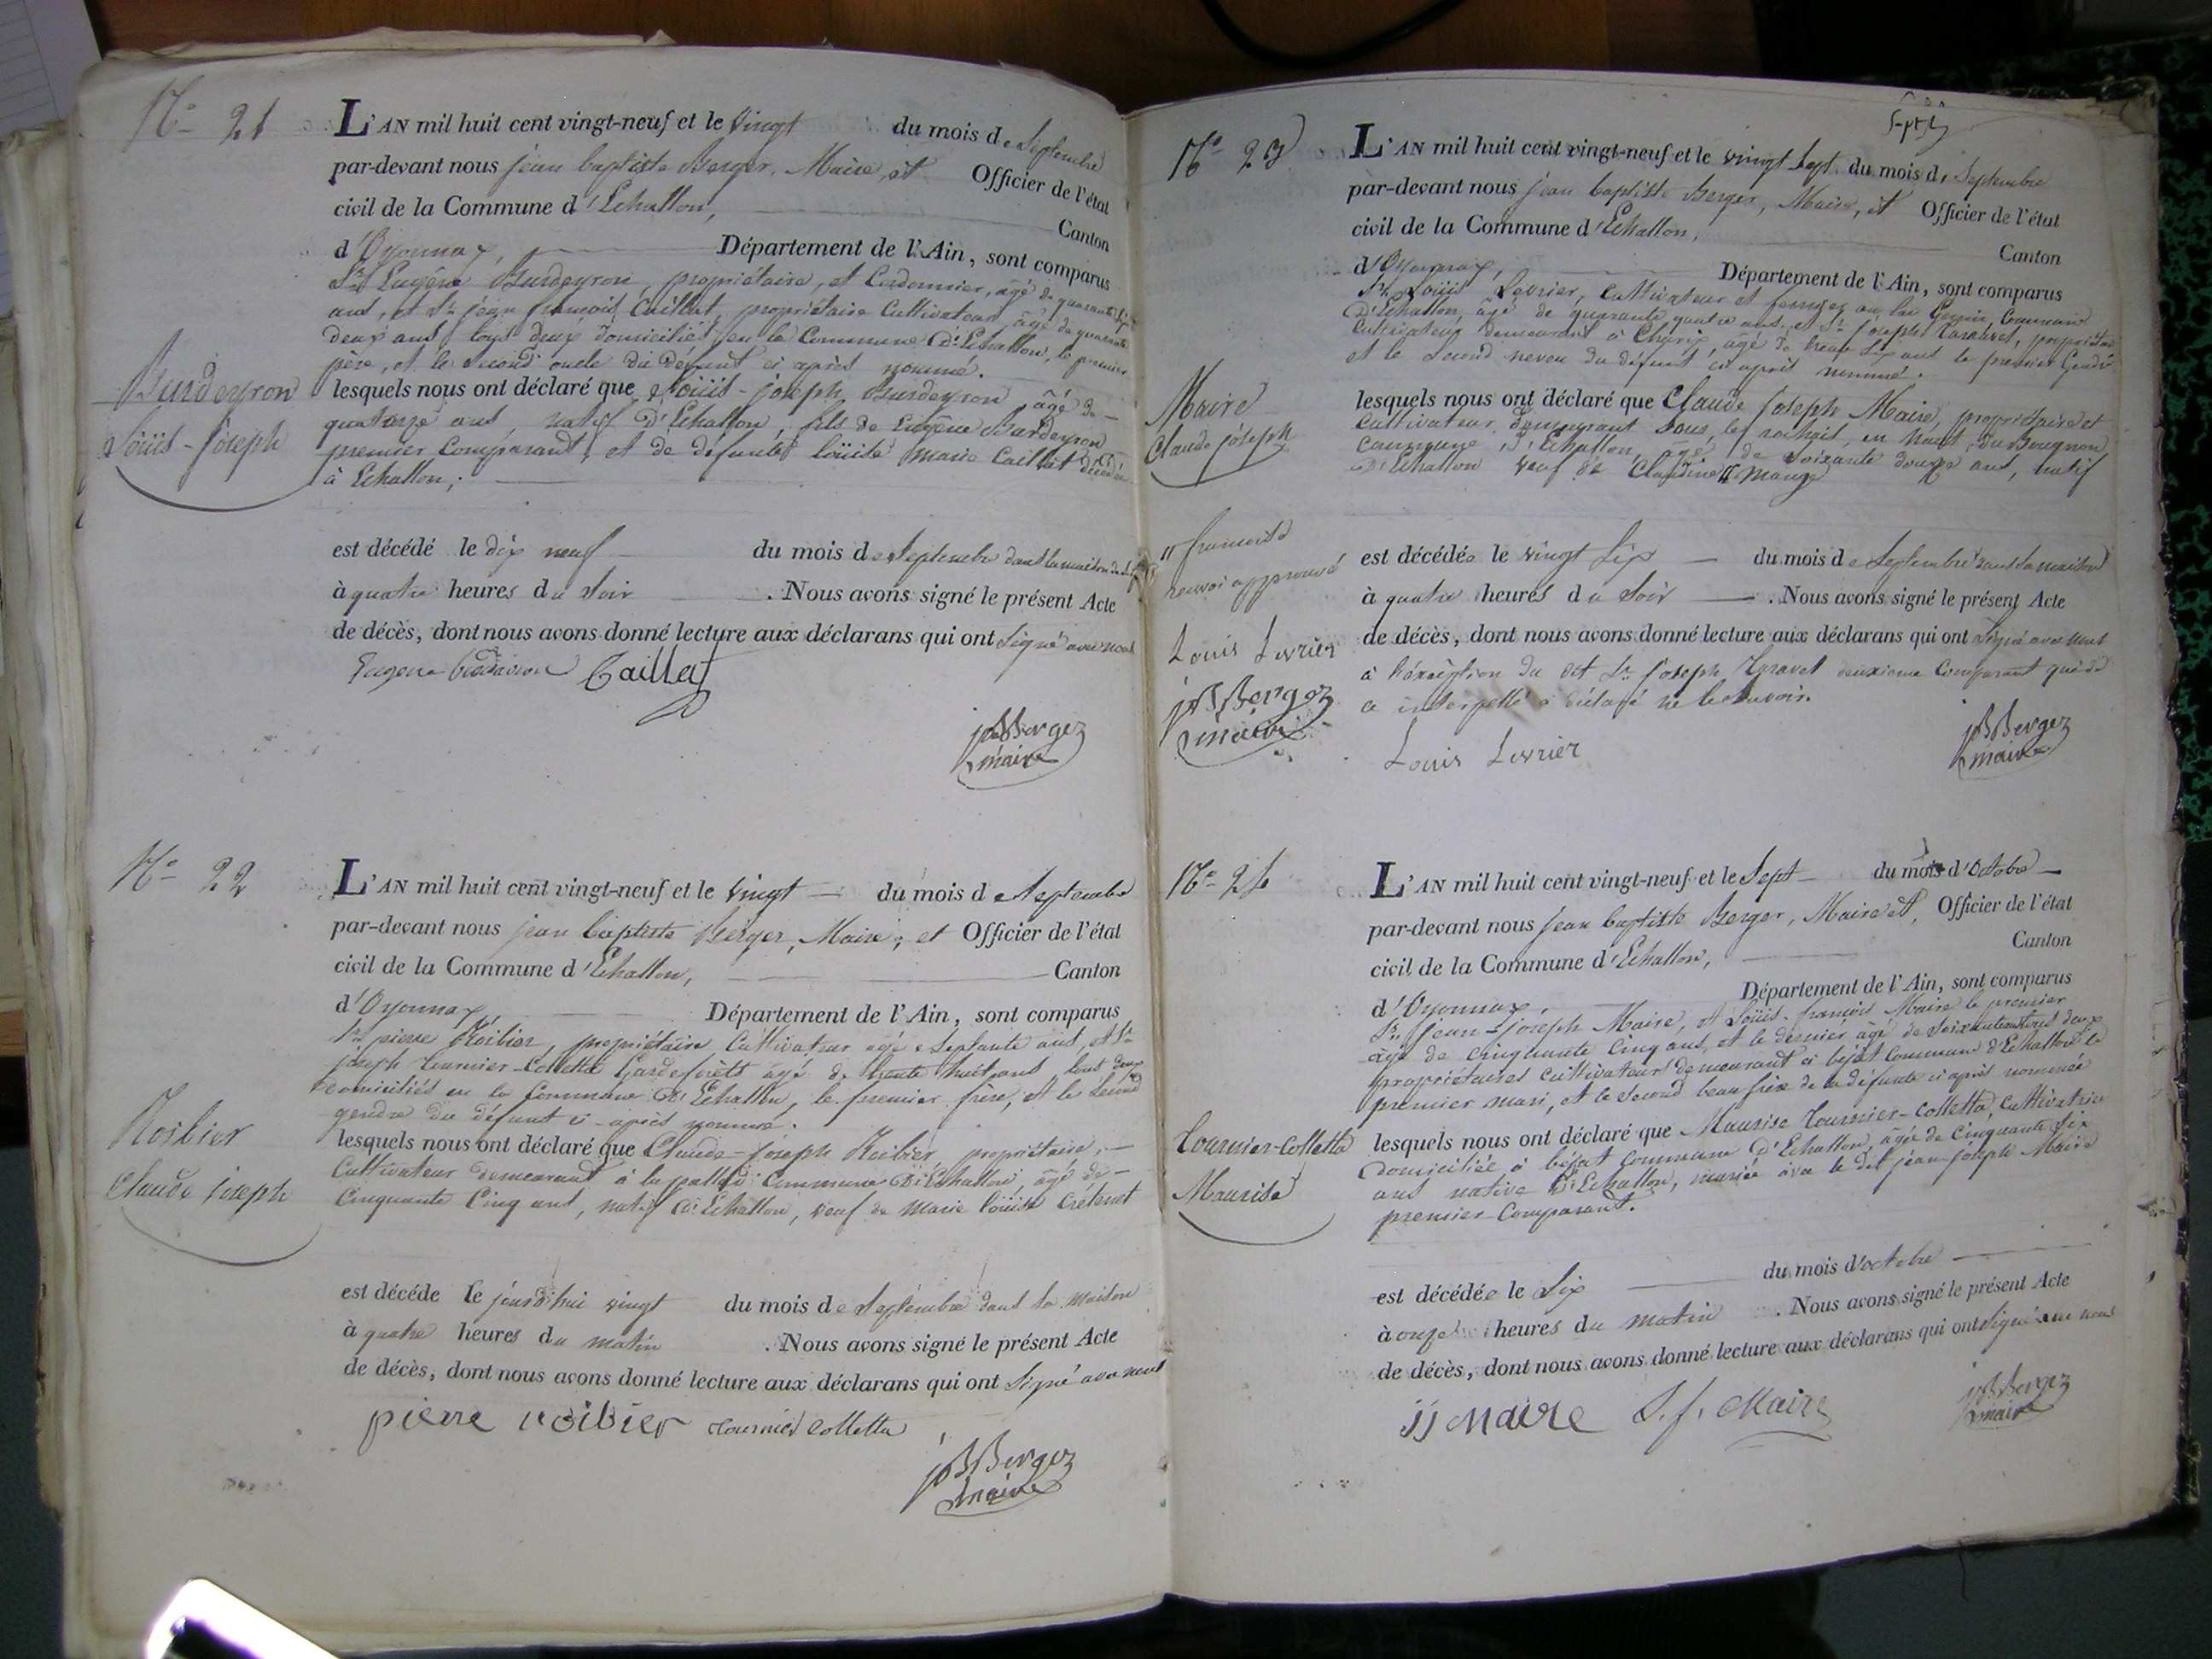 N° 21
L'AN mil huit cent vingt-neuf et le vingt du mois de Septembre
par-devant nous jean baptiste Berger, Maire, et Officier de l'état
civil de la Commune d'Echallon, Canton
d'Oyonnax, Département de l'Ain, sont comparus
Sr Eugène Burdeyron, propriétaire, et Cordonnier, âgé de quarante
ans, et Sr jean françois Caillat, propriétaire Cultivateur âgé de quarante
deux ans, tous deux domiciliés en la Commune d'Echallon, le premier
père, et le second oncle du défunt ci après nommé.
Burdeyron
Loüis-Joseph
lesquels nous ont déclaré que Loüis-joseph Burdeyron âgé de
quatorze ans, natif d'Echallon, fils de Eugène Burdeyron
premier Comparant, et de défunte loüise marie Caillat décédée
à Echallon;
est décédé le dix neuf du mois de Septembre dans la maison
à quatre heures du soir . Nous avons signé le présent Acte
de décès, dont nous avons donné lecture aux déclarans qui ont Signé avec nous
Caillat
jB Berger
maire
N° 22
L'AN mil huit cent vingt-neuf et le vingt du mois de Septembre
par-devant nous jean baptiste Berger, Maire, et Officier de l'état
civil de la Commune d'Echallon, Canton
d'Oyonnax Département de l'Ain, sont comparus
Sr pierre Roibier, propriétaire Cultivateur agé Septante ans, et Sr
joseph tournier-Colletta Gardeforêts agé de trente huit ans, tous deux
domiciliés en la Commune d'Echallon, le premier frère, et le second
gendre du défunt ci-après nommé.
Roibier
Claude joseph
lesquels nous ont déclaré que Claude-joseph Roibier, propriétaire,
Cultivateur demeurant à commune d'Echallon, âgé de
Cinquante Cinq ans, natif d'Echallon, veuf de Marie loüise Crétenet
est décéde le jourd'hui vingt du mois de Septembre dans sa maison
à quatre heures du matin . Nous avons signé le présent Acte
de décès, dont nous avons donné lecture aux déclarans qui ont Signé avec nous
pierre roibier tournier Colletta
jB Berger
maire
N° 23
L'AN mil huit cent vingt-neuf et le vingt Sept du mois de Septembre
par-devant nous jean baptiste Berger, Maire, et Officier de l'état
civil de la Commune d'Echallon, Canton
d'Oyonnax, Département de l'Ain, sont comparus
Sr Loüis Levrier, Cultivateur et fermier au Commune
d'Echallon, âgé de quarante quatre ans, et Sr joseph propriétaire
Cultivateur demeurant à âgé de trente Six ans le premier Gendre
et le Second neveu du défunt ci après nommé.
Maire
Claude joseph
lesquels nous ont déclaré que Claude joseph Maire, propriétaire et
cultivateur demeurant Sous en haut du
commune d'Echallon, âgé de Soixante douze ans, natif
d'Echallon veuf de Claudine // Mange
// françoise
renvoi approuvé
Louis Levrier
jB Berger
maire
est décédée le vingt Six du mois de Septembre dans sa maison
à quatre heures du Soir . Nous avons signé le présent Acte
de décès, dont nous avons donné lecture aux déclarans qui ont Signé avec nous
à l'exception du dit Sr joseph deuxième Comparant qui de
ce interpellé a déclaré ne le savoir.
Louis Levrier
jB Berger
maire
N° 24
L'AN mil huit cent vingt-neuf et le Sept du mois d'Octobre
par-devant nous jean baptiste Berger, Maire et, Officier de l'état
civil de la Commune d'Echallon, Canton
d'Oyonnax, Département de l'Ain, sont comparus
Sr jean-joseph Maire, et Loüis-françois Maire le premier
âgé de cinquante Cinq ans, et le dernier âgé de Soixante tous deux
propriétaires cultivateurs demeurant à commune d'Echallon le
premier mari, et le Second beau frère de la défunte ci après nommée
Tournier-Colletta
Maurise
lesquels nous ont déclaré que Maurise Tournier-Colletta, Cultivatrice
domiciliée à commune d'Echallon, âgée de Cinquante Six
ans native d'Echallon, mariée avec le dit jean-joseph Maire
premier Comparant.
est décédée le Six du mois d'octobre
à onze heures du matin . Nous avons signé le présent Acte
de décès, dont nous avons donné lecture aux déclarans qui ont Signé avec nous
jj Maire L.f. Maire
jB Berger
maire